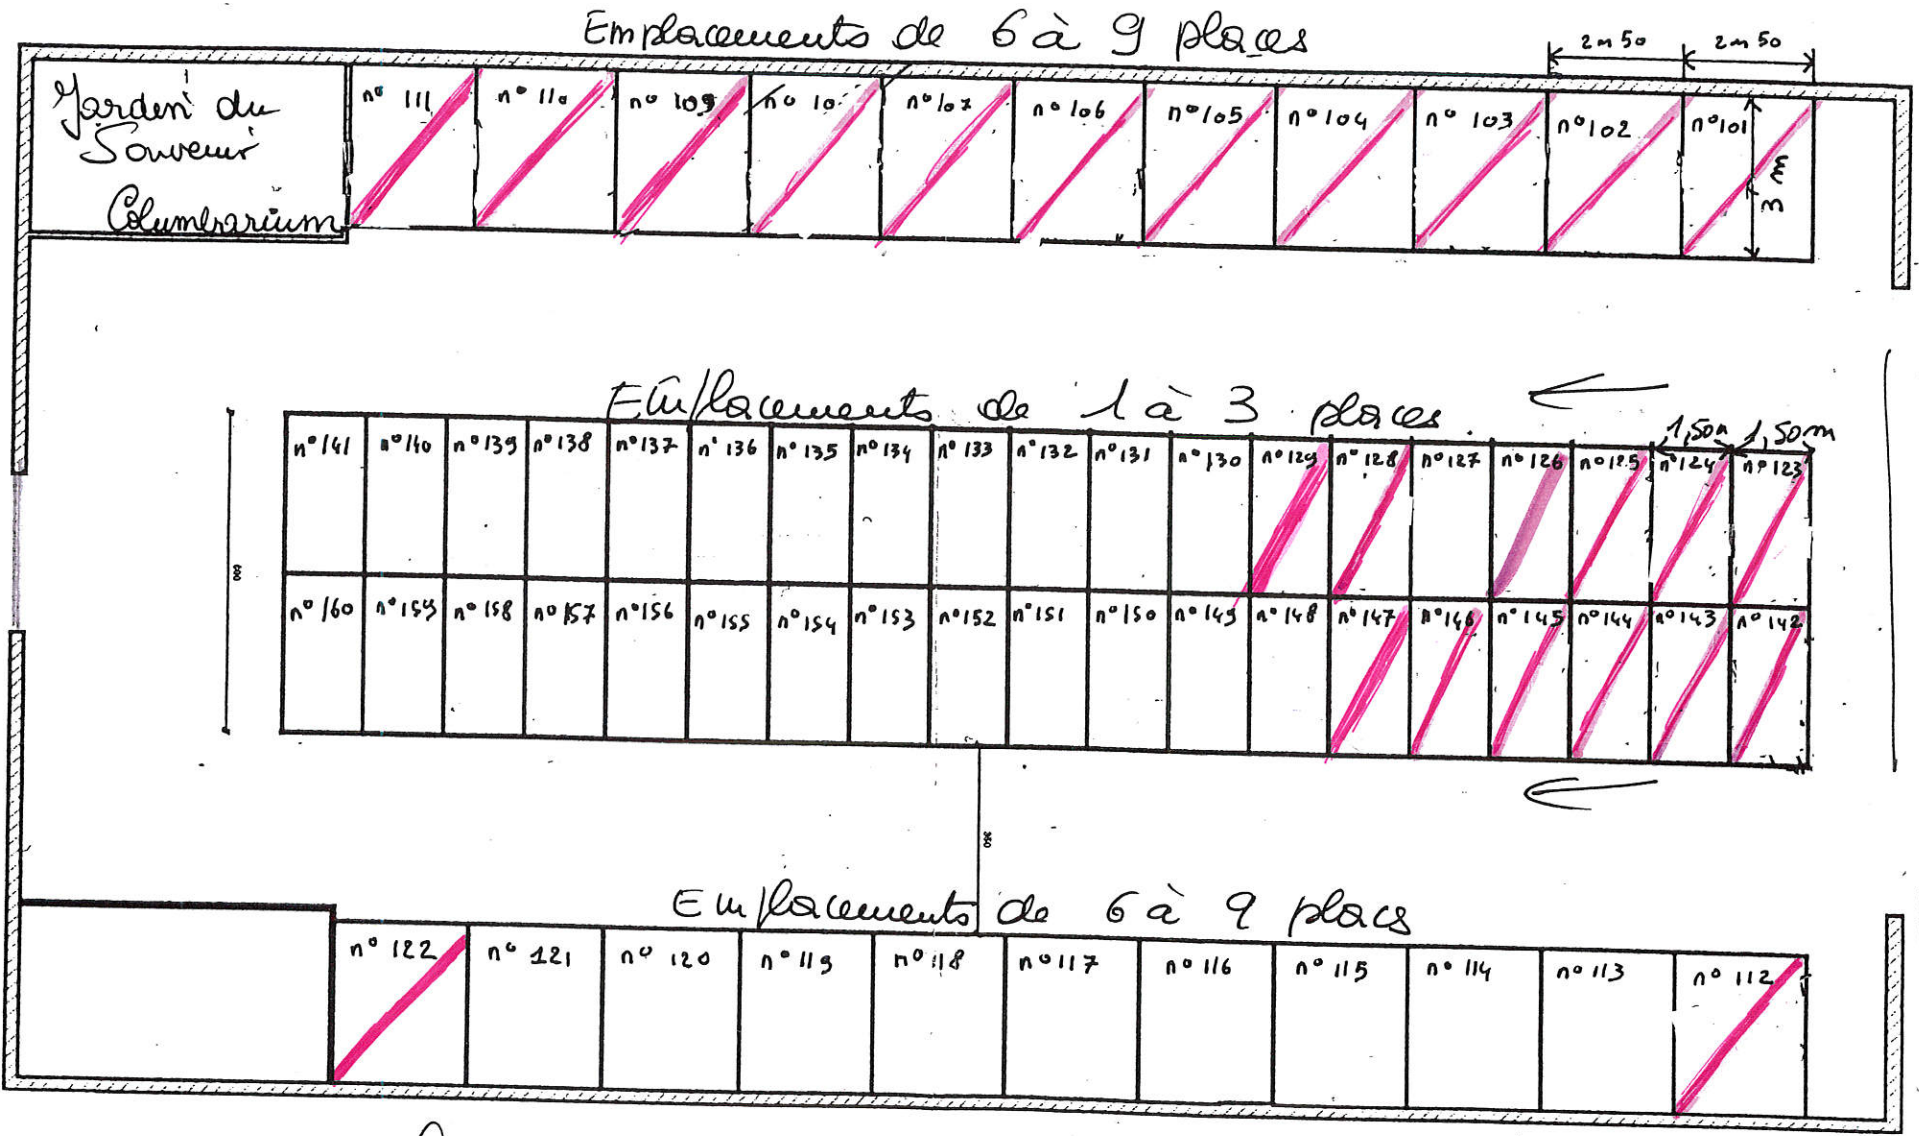 Emplacements de 6 à 9 places
2m50 2m50
Jardin du
Souvenir
Columbarium
n° 111 n° 110 n° 109 n° 10 n°107 n° 106 n°105 n°104 n° 103 n°102 n°101
3 m
Emplacements de 1 à 3 places
1,50m 1,50m
n°141 n°140 n°139 n°138 n°137 n°136 n°135 n°134 n°133 n°132 n°131 n°130 n°129 n°128 n°127 n°126 n°125 n°124 n°123
n°160 n°159 n°158 n°157 n°156 n°155 n°154 n°153 n°152 n°151 n°150 n°149 n°148 n°147 n°146 n°145 n°144 n°143 n°142
350
Emplacements de 6 à 9 placs
n° 122 n° 121 n° 120 n°119 n°118 n°117 n°116 n°115 n°114 n°113 n°112